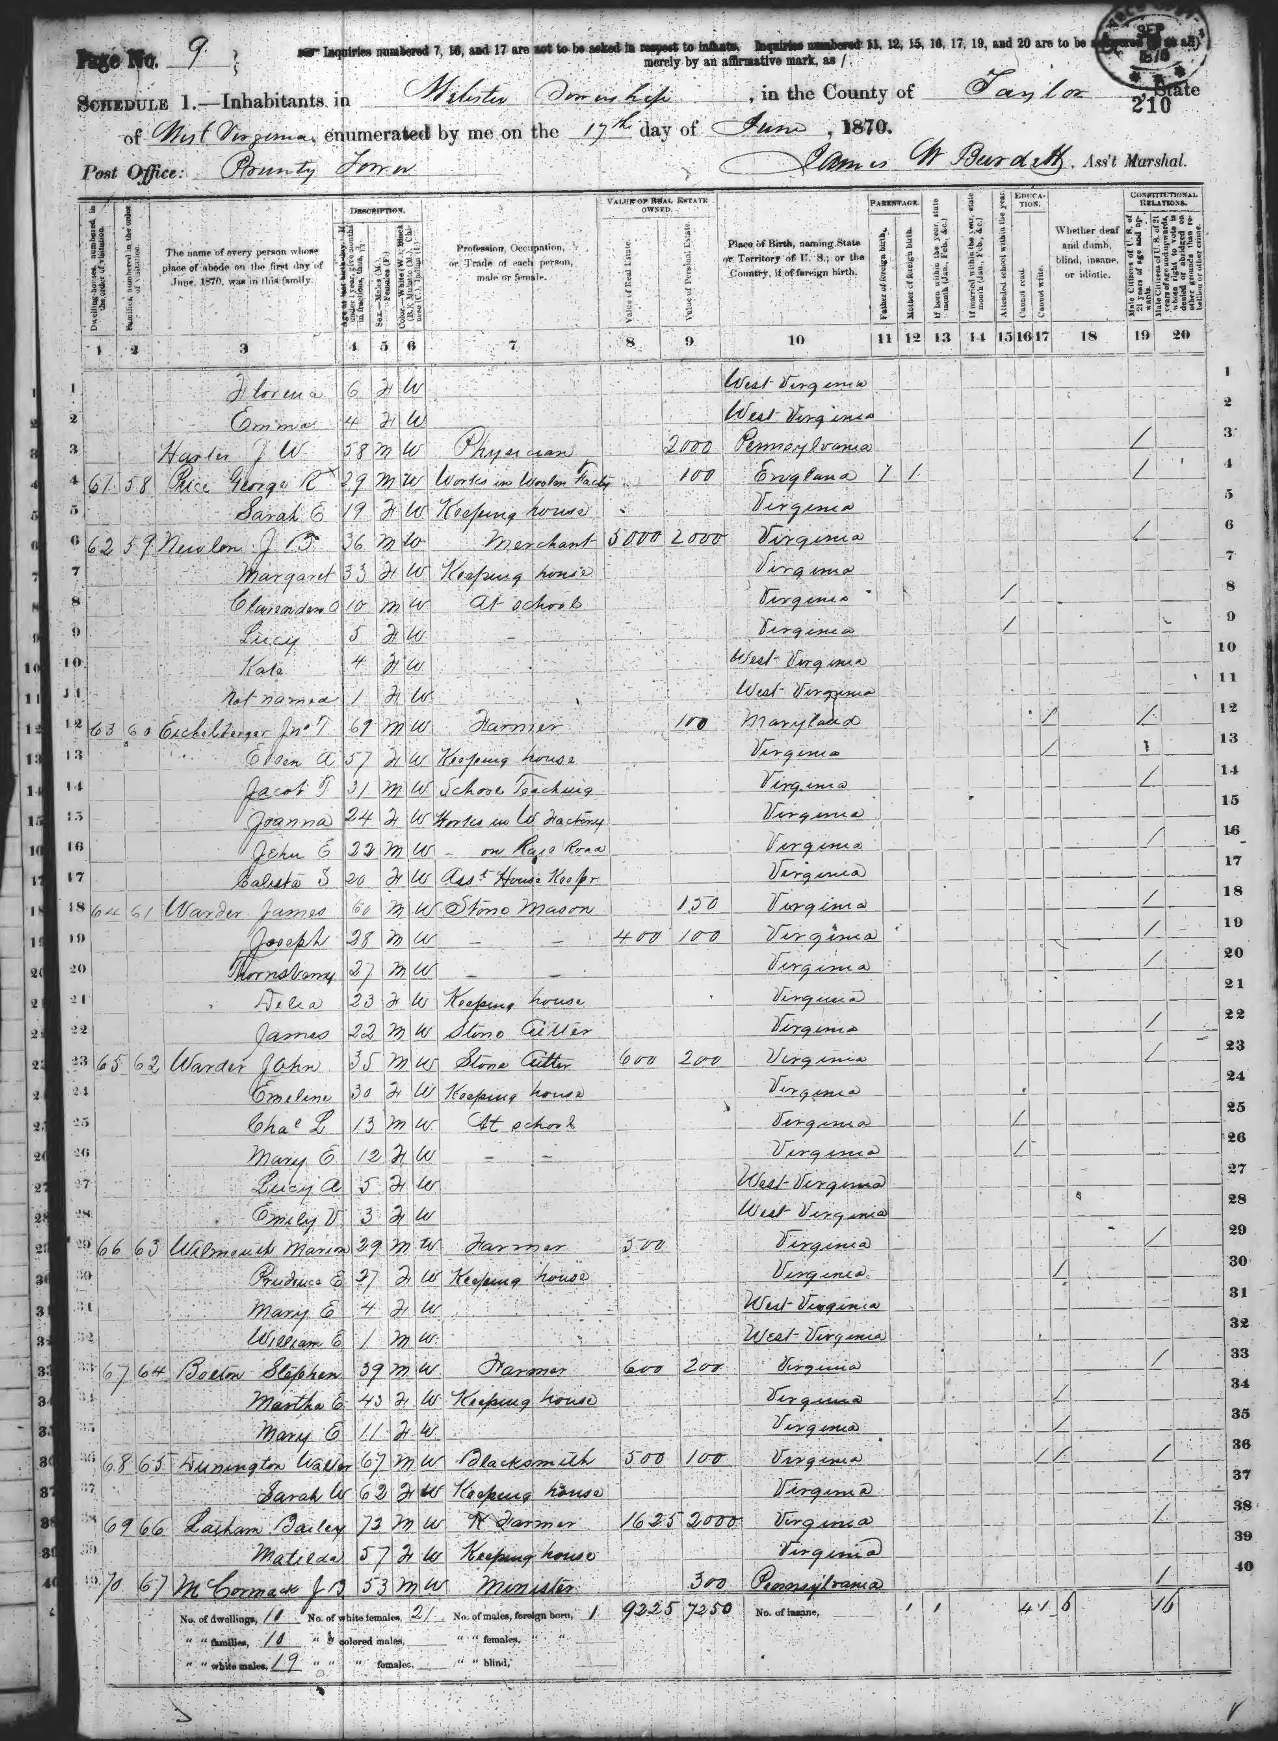 Page No. 9.
Inquiries numbered 7, 16, and 17 are not to be asked in respect to infants. Inquiries numbered 11, 12, 15, 16, 17, 19, and 20 are to be answered (if at all)
merely by an affirmative mark, as /.
SCHEDULE 1.—Inhabitants in Webster Township, in the County of Taylor, State
210
of West Virginia, enumerated by me on the 17th day of June, 1870.
Post Office: Pruntytown
James W Burdett, Ass't Marshal.
Dwelling-houses, numbered in the order of visitation.
Families, numbered in the order of visitation.
The name of every person whose place of abode on the first day of June, 1870, was in this family.
DESCRIPTION.
Sex.—Males (M.), Females (F.)
Profession, Occupation, or Trade of each person, male or female.
VALUE OF REAL ESTATE OWNED.
Value of Real Estate.
Value of Personal Estate.
Place of Birth, naming State or Territory of U. S.; or the Country, if of foreign birth.
PARENTAGE.
Father of foreign birth.
Mother of foreign birth.
If born within the year, state month (Jan., Feb., &c.)
If married within the year, state month (Jan., Feb., &c.)
Attended school within the year.
EDUCATION.
Cannot read.
Cannot write.
Whether deaf and dumb, blind, insane, or idiotic.
CONSTITUTIONAL RELATIONS.
1 2 3 4 5 6 7 8 9 10 11 12 13 14 15 16 17 18 19 20
1 6 F W West Virginia 1
2 Emma 4 F W West Virginia 2
3 J W 58 M W Physician 2000 Pennsylvania / 3
4 61 58 Price George R 29 M W Works in Woolen Facty 100 England / / / 4
5 Sarah E 19 F W Keeping house Virginia 5
6 62 59 Newlon J B 36 M W Merchant 5000 2000 Virginia / 6
7 Margaret 33 F W Keeping house Virginia 7
8 10 M W At school Virginia / 8
9 Lucy 5 F W - Virginia / 9
10 Kate 4 F W West Virginia 10
11 Not named 1 F W West Virginia 11
12 63 60 Eichelberger Jno T 69 M W Farmer 100 Maryland / / 12
13 Ellen A 57 F W Keeping house Virginia / 13
14 Jacob T 31 M W School Teaching Virginia / 14
15 Joanna 24 F W Works in W Factory Virginia 15
16 John E 22 M W - on Rail Road Virginia / 16
17 Calista S 20 F W Asst House Keeper Virginia 17
18 64 61 Warder James 60 M W Stone Mason 150 Virginia / 18
19 Joseph 28 M W - - 400 100 Virginia / 19
20 Thornsberry 27 M W - - Virginia / 20
21 Delia 23 F W Keeping house Virginia 21
22 James 22 M W Stone Cutter Virginia / 22
23 65 62 Warder John 35 M W Stone Cutter 600 200 Virginia / 23
24 Emeline 30 F W Keeping house Virginia 24
25 Chas L 13 M W At school Virginia / 25
26 Mary E 12 F W - - Virginia / 26
27 Lucy A 5 F W West Virginia 27
28 Emily V 3 F W West Virginia 28
29 66 63 Wilmouth Marion 29 M W Farmer 500 Virginia / 29
30 Prudence E 27 F W Keeping house Virginia / 30
31 Mary E 4 F W West Virginia 31
32 William E 1 M W West Virginia 32
33 67 64 Bolton Stephen 39 M W Farmer 600 200 Virginia / 33
34 Martha E 43 F W Keeping house Virginia / 34
35 Mary E 11 F W Virginia / 35
36 68 65 Dunington Walter 67 M W Blacksmith 500 100 Virginia / / / 36
37 Sarah W 62 F W Keeping house Virginia 37
38 69 66 Latham Bailey 73 M W R Farmer 1625 2000 Virginia / 38
39 Matilda 57 F W Keeping house Virginia 39
40 70 67 McCormack J B 53 M W Minister 300 Pennsylvania / 40
No. of dwellings, 10 No. of white females, 21 No. of males, foreign born, 1 9225 7250 No. of insane, 1 1 4 1 6 16
" " families, 10 " " colored males, " " females, " "
" " white males, 19 " " " females, " " blind,